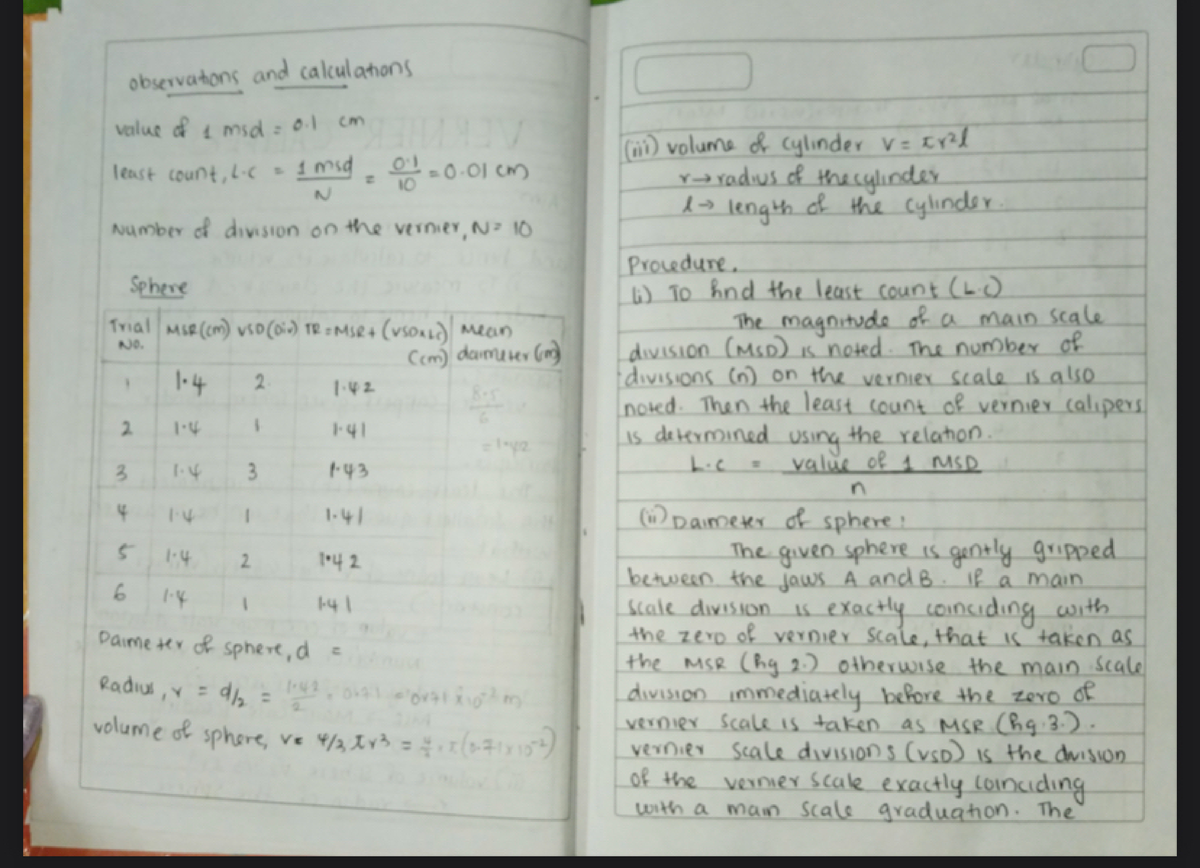 observations and calculations
value of 1 msd = 0.1 cm
least count, L.C = 1 msd / N = 0.1 / 10 = 0.01 cm
Number of division on the vernier, N = 10
Sphere
Trial No. MSR (cm) VSD (Div) TR = MSR + (VSD×LC) (cm) Mean daimeter (cm)
1 1.4 2 1.42 8.5 / 6
2 1.4 1 1.41 = 1.42
3 1.4 3 1.43
4 1.4 1 1.41
5 1.4 2 1.42
6 1.4 1 1.41
Daimeter of sphere, d =
Radius, r = d/2 = = 0.71 × 10⁻² m
volume of sphere, v = 4/3 πr³ = π (0.71 × 10⁻²)
(iii) volume of cylinder v = πr²l
r → radius of the cylinder
l → length of the cylinder.
Procedure.
(i) To find the least count (L.C)
The magnitude of a main scale
division (MSD) is noted. The number of
divisions (n) on the vernier scale is also
noted. Then the least count of vernier calipers
is determined using the relation.
L.C = value of 1 MSD
n
(ii) Daimeter of sphere:
The given sphere is gently gripped
between the jaws A and B. If a main
scale division is exactly coinciding with
the zero of vernier scale, that is taken as
the MSR (fig 2.) otherwise the main scale
division immediately before the zero of
vernier scale is taken as MSR (fig. 3.).
vernier scale divisions (VSD) is the division
of the vernier scale exactly coinciding
with a main scale graduation. The